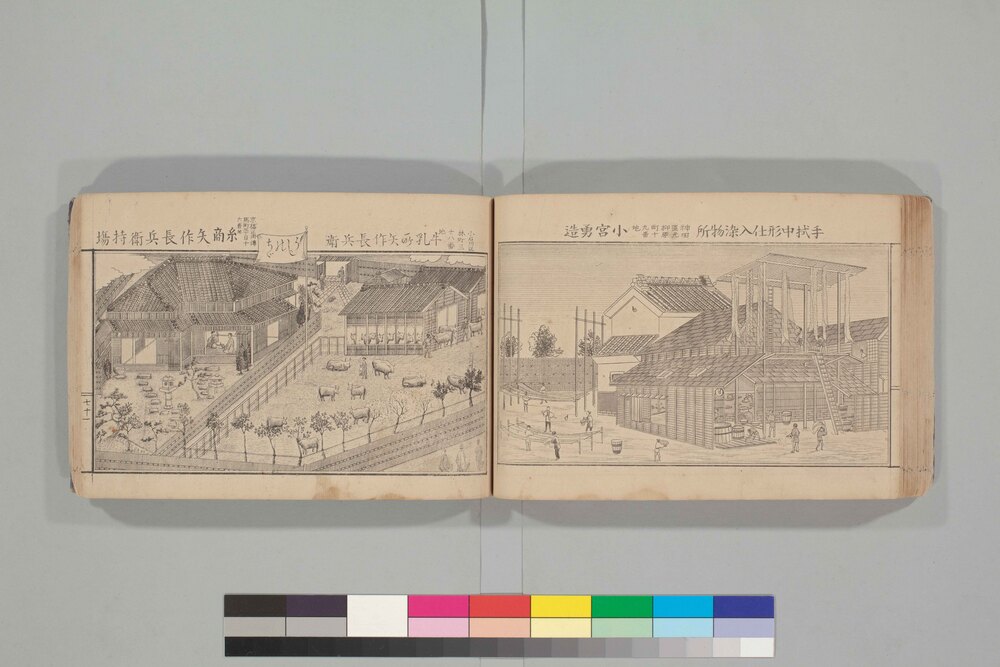 手拭中形仕入染物所
神田
區元
柳原
町十
九番
地
小宮勇造
牛乳所矢作長兵衛
糸商矢作長兵衛持場
うしのちゝ
七十一